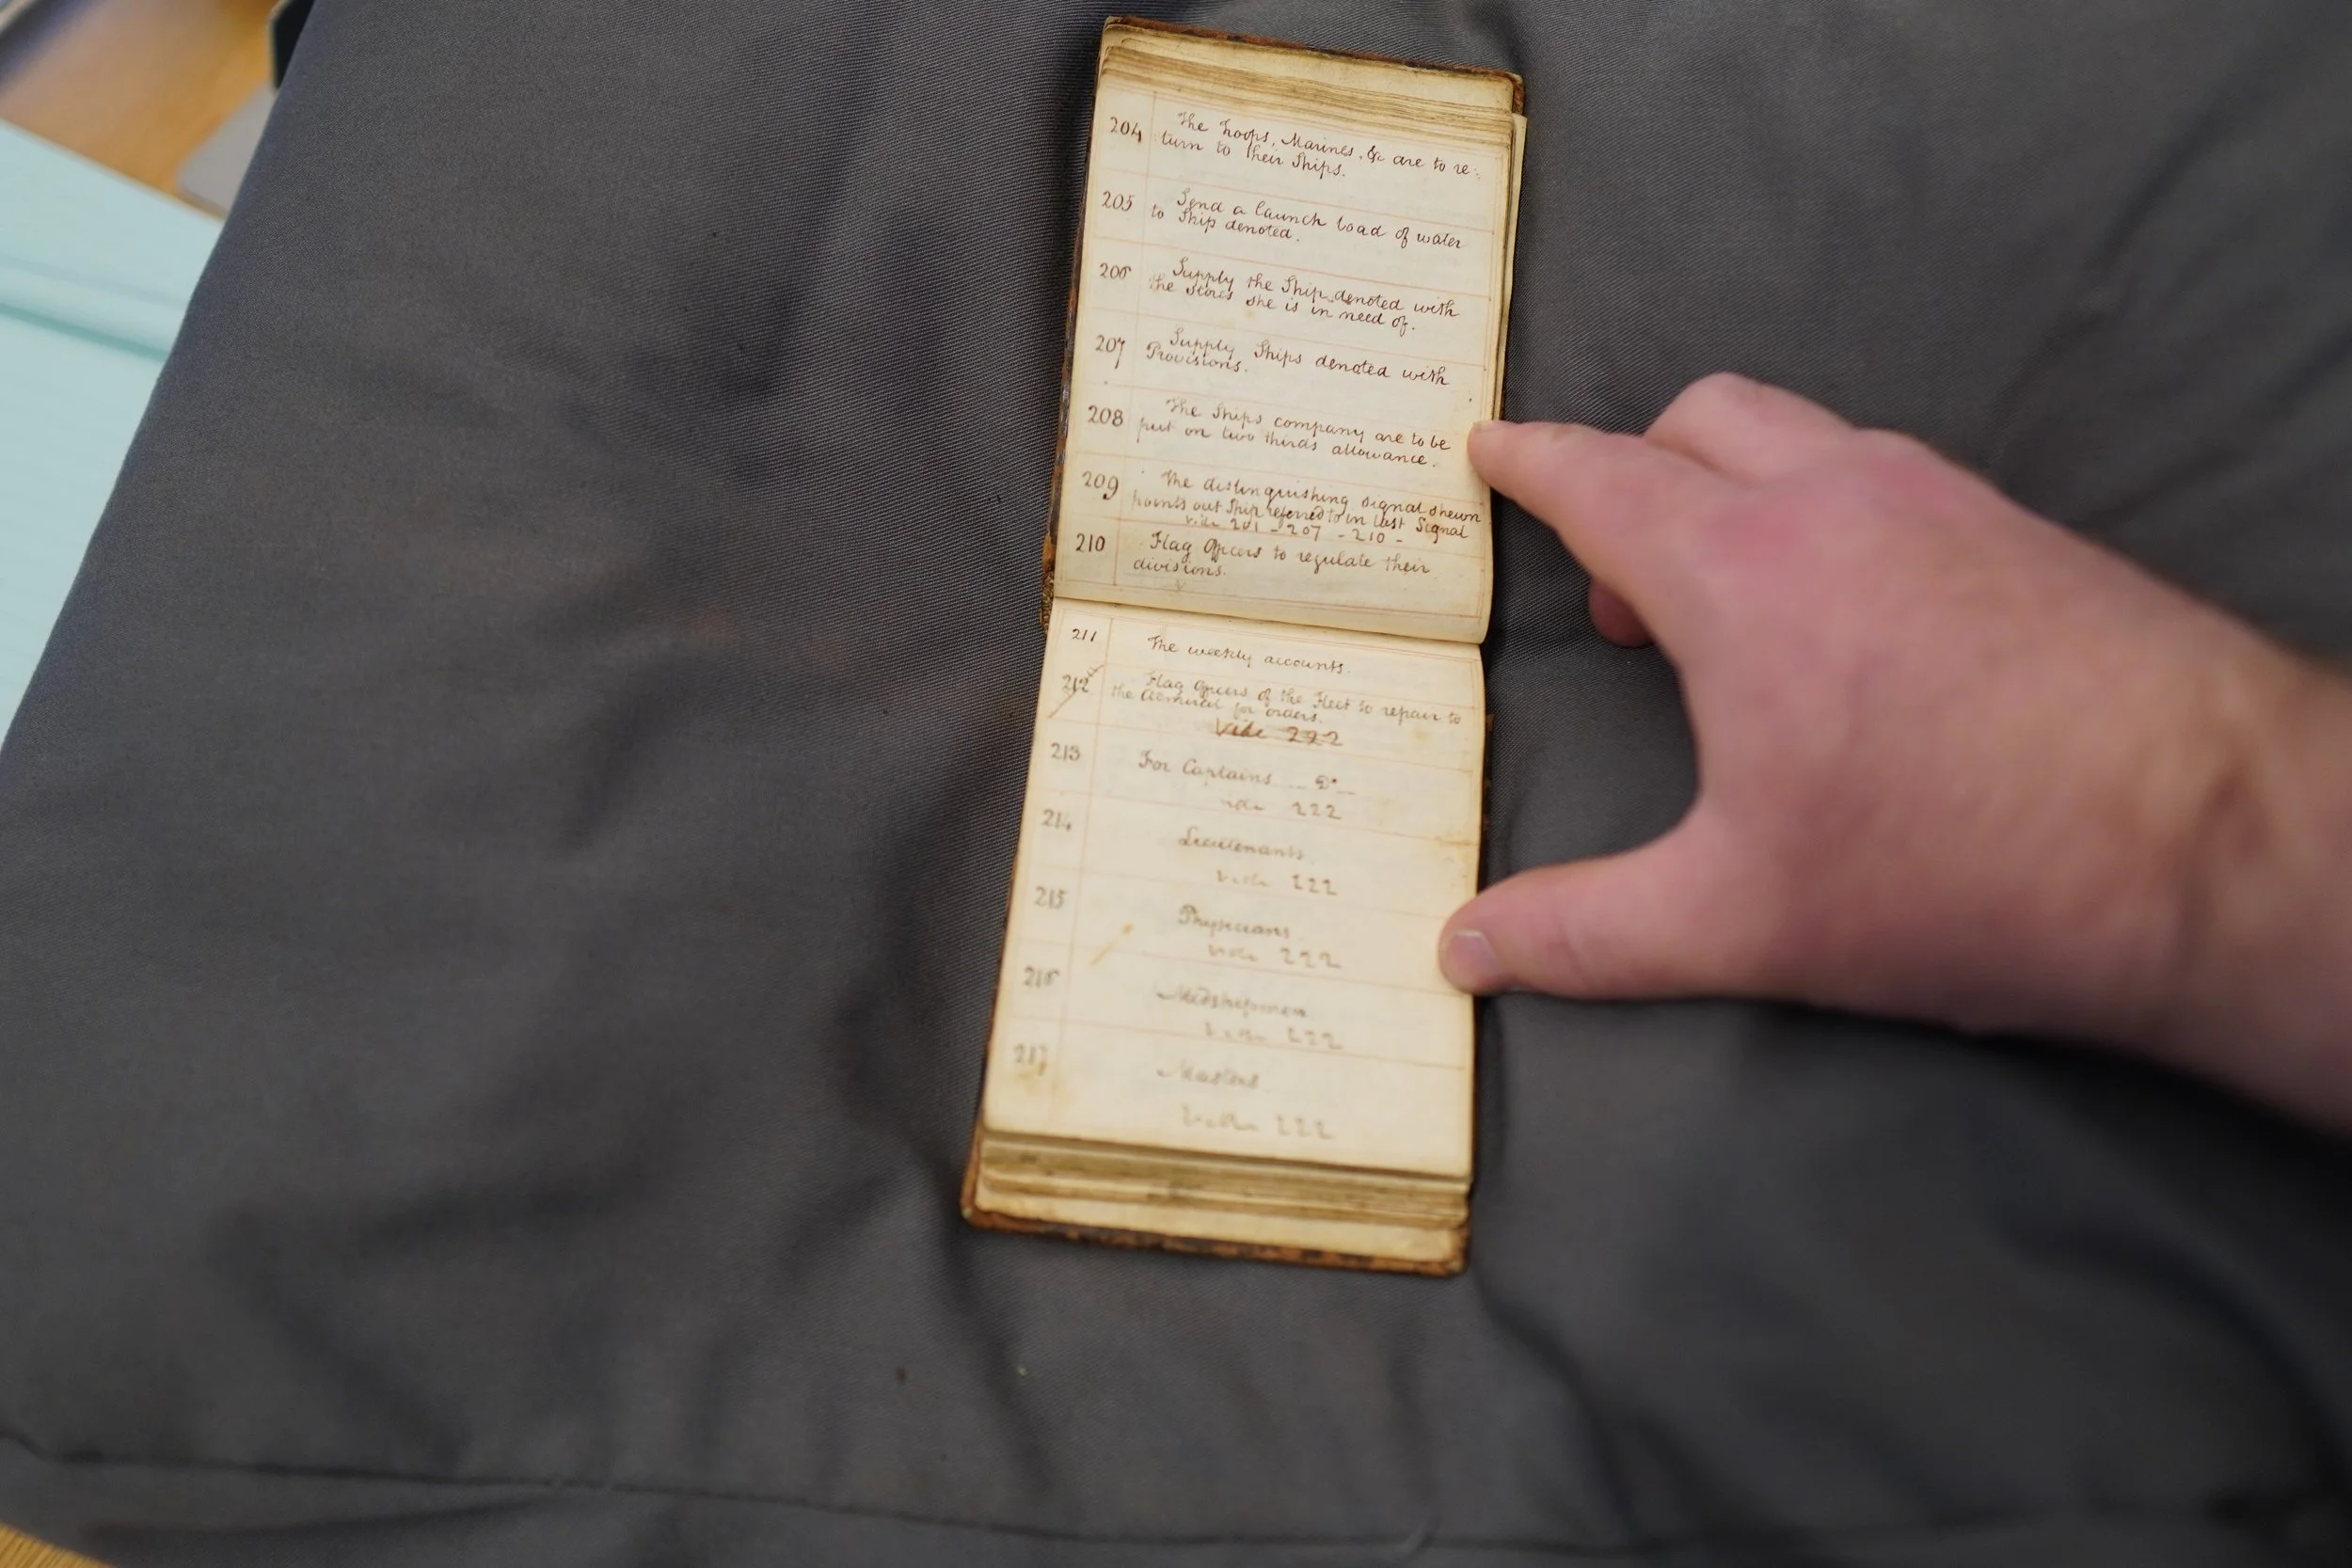 204 The Troops, Marines, &c are to re:
turn to their Ships.
205 Send a launch load of water
to Ship denoted.
206 Supply the Ship denoted with
the Stores she is in need of.
207 Supply Ships denoted with
Provisions.
208 The Ships company are to be
put on two thirds allowance.
209 The distinguishing signal shewn
points out Ship referred to in last Signal
vide 201 - 207 - 210 -
210 Flag Officers to regulate their
divisions.
211 The weekly accounts.
212 Flag Officers of the Fleet to repair to
the Admiral for orders.
Vide 222
213 For Captains _ Do _
vide 222
214 Lieutenants
vide 222
215 Physicians
vide 222
216 Midshipmen
vide 222
217 Masters
vide 222